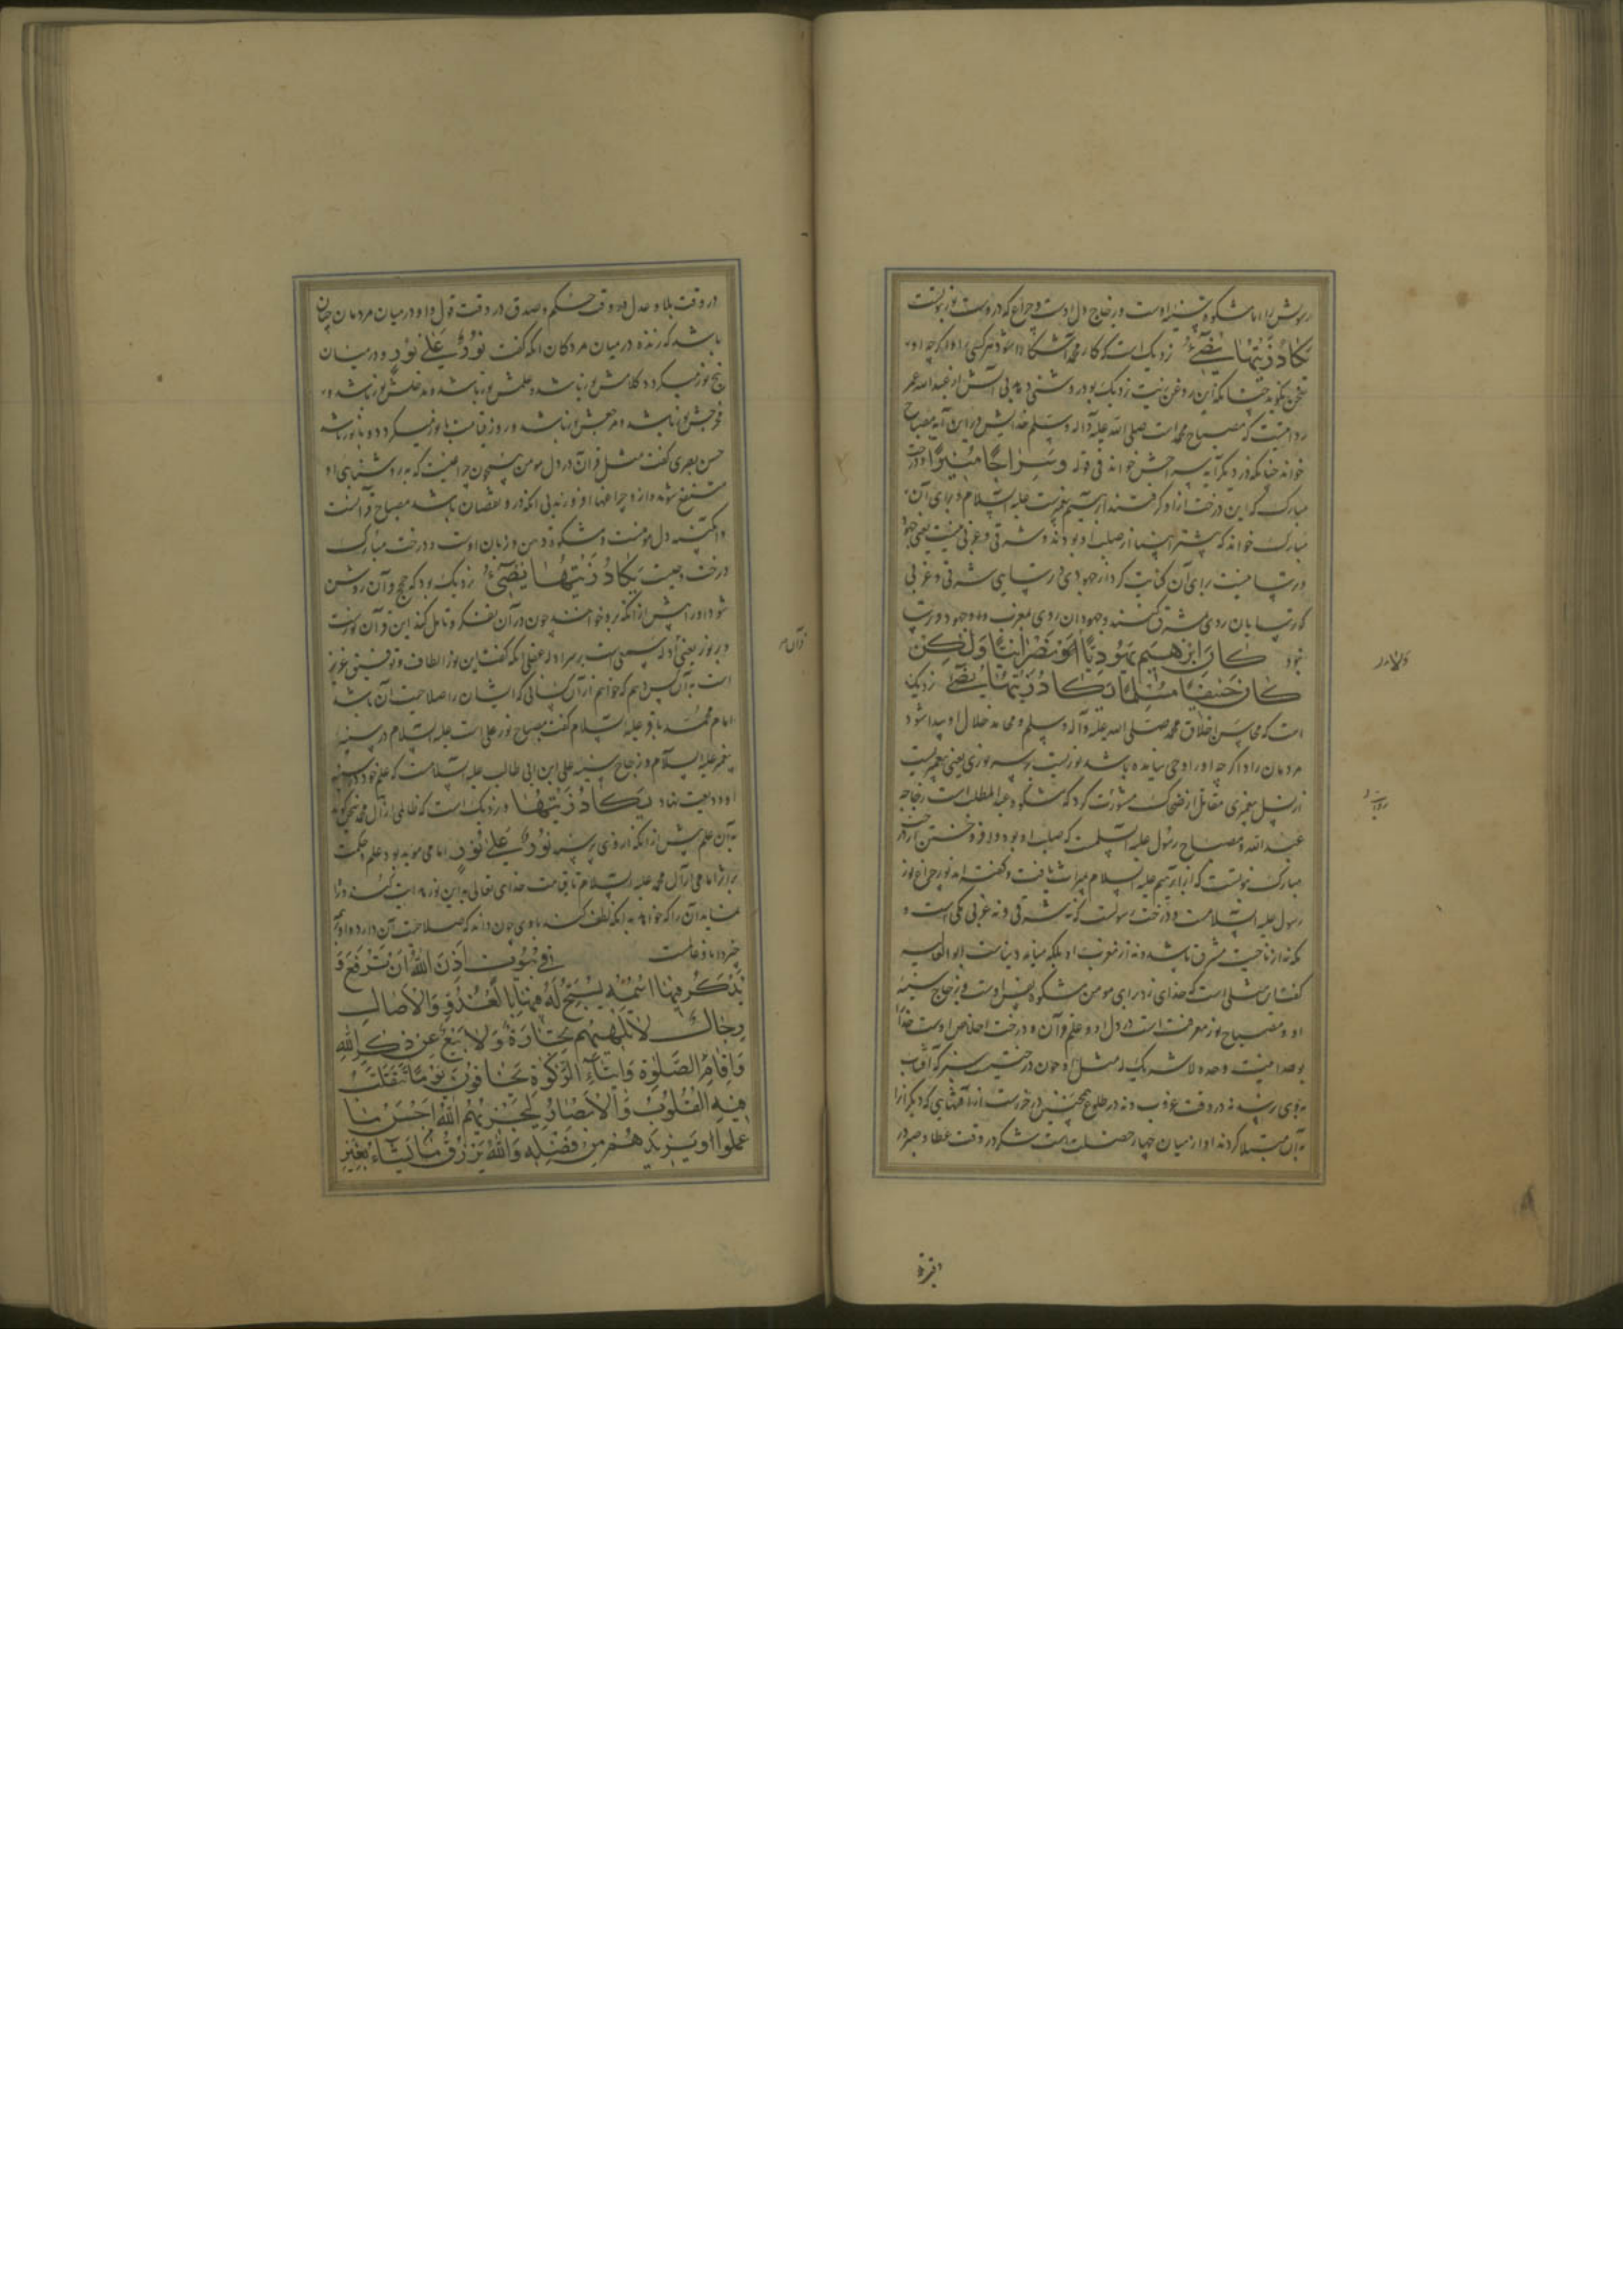 رسولش را اما مشکوة سینه اوست و زجاج دل اوست و چراغ که دروست نور نبوتست
یَکادُ زَیْتُها یُضیءُ نزدیک است که کار محمد آشکارا شود هر کسی را و اگر چه او
سخن نگوید چنانکه این روغن زیت نزدیک بود روشنی دهد بی آتش از عبدالله عمر
روایتست که مصباح محمد است صلی الله علیه و آله وسلم خدایش در این آیه مصباح
خواند چنانکه در دیگر آیه سراجش خواند فی قوله وَسِراجاً مُنیراً و درخت
مبارک که این درخت ازو گرفتند ابرهیم پیغمبرست علیه السلام و برای آن
مبارک خواند که بیشتر انبیا از صلب او بودند و شرقی و غربی نیست یعنی جهود
و ترسا نیست برای آن کنایت کرد از جهودی و ترسایی بشرقی و غربی
که ترسایان روی بمشرق کنند و جهودان روی بمغرب و او جهود و ترسا
نبود کانَ اِبْرهیمُ یَهُودِیّاً وَلا نَصْرانِیّاً وَلکِنْ
کانَ حَنیفاً مُسْلِماً یَکادُ زَیْتُها یُضیءُ نزدیک
است که محاسن اخلاق محمد صلی الله علیه وآله وسلم و محامد خلال او پیدا شود
مردمان را و اگر چه او را وحی نیامده باشد نور نبوت بر سر نوری یعنی پیغمبریست
از نسل پیغمبری مقاتل از ضحاک
عبدالله و مصباح رسول علیه السلمست که صلب او بود
مبارک نبوتست که از ابراهیم علیه السلام میراث یافت
رسول علیه السلامست و درخت رسولست که نه شرقی و نه غربی مکی است و
مکه نه از ناحیت مشرق باشد و نه از مغرب او بلکه میانه دنیاست ابوالعالیه
گفت این مثلی است که خدای زد برای مومن مشکوة نفس اوست و زجاج سینه
او و مصباح نور معرفت است در دل او و علم قرآن و درخت اخلاص اوست خدا
بوحدانیت وحده لا شریک له مثل او چون درختیست سبز که آفتاب
به وی نرسد نه در وقت غروب و نه در طلوع همچنین در حراست از آفتهایی که دیگرانرا
به آن مبتلا کردند او از میان چهار خصلت است شکر در وقت عطا و صبر در
ولا
در وقت بلا و عدل در وقت حکم و صدق در وقت قول و او در میان مردمان چنان
باشد که زنده در میان مردگان آنکه گفت نُورٌ عَلی نُورٍ و در میان
پنج نور میگردد کلامش نور باشد و علمش نور باشد و مدخلش نور باشد و
مخرجش نور باشد و مرجعش نور باشد و روز قیامت با نور میگردد و با نور باشد
حسن بصری گفت مثل قرآن در دل مومن همچون چراغیست که به روشنایی او
منتفع شوند و از و چراغها افروزند بی آنکه درو نقصان باشد مصباح قرآنست
و آبگینه دل مومنست و مشکوة دهن و زبان اوست و درخت مبارک
درخت وحیست یَکادُ زَیْتُها یُضیءُ نزدیک بود که حجج قرآن روشن
شود او را پیش از آنکه برو خوانند چون در آن تفکر و تامل کند این قرآن نوریست
و بر نور یعنی ادله سمعی است بر سر ادله عقلی آنکه گفت این نور الطاف و توفیقی عزیز
است به آن کس دهم که خواهم از آن کسانی که ایشان را صلاحیت آن باشد
امام محمد باقر علیه السلام گفت مصباح نور علی است علیه السلام در سینه
پیغمبر علیه السلام و زجاج سینه علی ابن ابی طالب علیه السلامست که علم خود در سینه
او ودیعت نهاد یَکادُ زَیْتُها و نزدیک است که عالمی از آل محمد سخن گوید
به آن علم پیش از آنکه از وی پرسند نُورٌ عَلی نُورٍ امامی مؤید بود بعلم و حکمت
بر اثر امامی از آل محمد علیه السلام تا قیامت خدای تعالی به این نور هدایت کند و راه
نماید آن را که خواهد به آنکه لطف کند با وی چون داند که صلاحیت آن دارد و او بهر
چیز دانا و عالمست فی بُیُوتٍ اَذِنَ اللهُ اَنْ تُرْفَعَ وَ
یُذْکَرَ فیهَا اسْمُهُ یُسَبِّحُ لَهُ فیها بِالْغُدُوِّ وَالْاٰصالِ
رِجالٌ لا تُلْهیهِمْ تِجارَةٌ وَلا بَیْعٌ عَنْ ذِکْرِ اللهِ
وَاِقامِ الصَّلوٰةِ وَایتاءِ الزَّکوٰةِ یَخافُونَ یَوْماً تَتَقَلَّبُ
فیهِ الْقُلُوبُ وَالْاَبْصارُ لِیَجْزِیَهُمُ اللهُ اَحْسَنَ ما
عَمِلُوا وَیَزیدَهُمْ مِنْ فَضْلِهِ وَاللهُ یَرْزُقُ مَنْ یَشاءُ بِغَیْرِ
قرآن